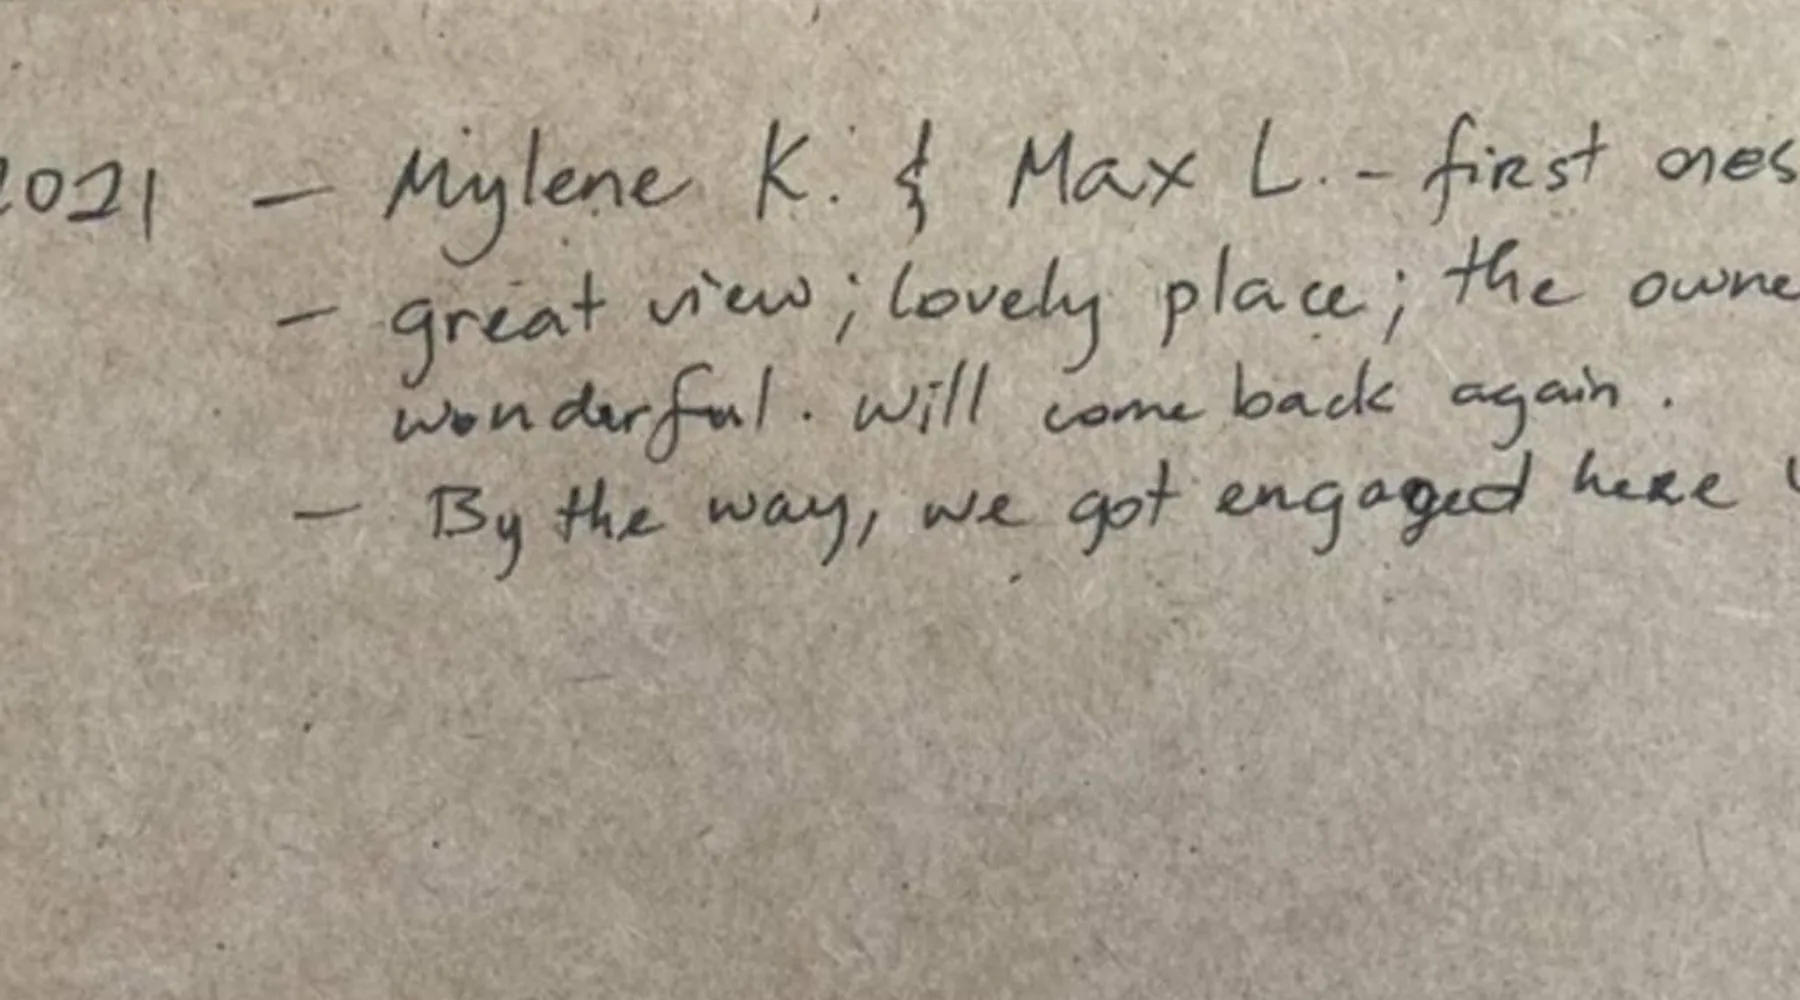 2021 — Mylene K. & Max L. - first ones
— great view; lovely place; the owne
wonderful. will come back again.
— By the way, we got engaged here